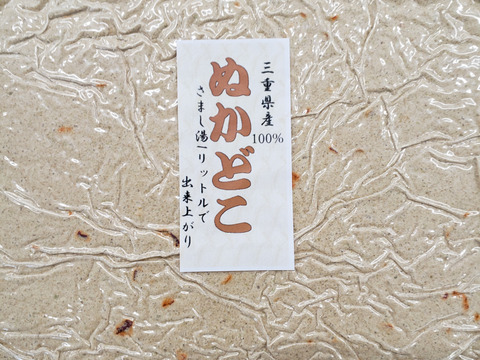 三重県産
100%
ぬかどこ
さまし湯1リットルで
出来上がり